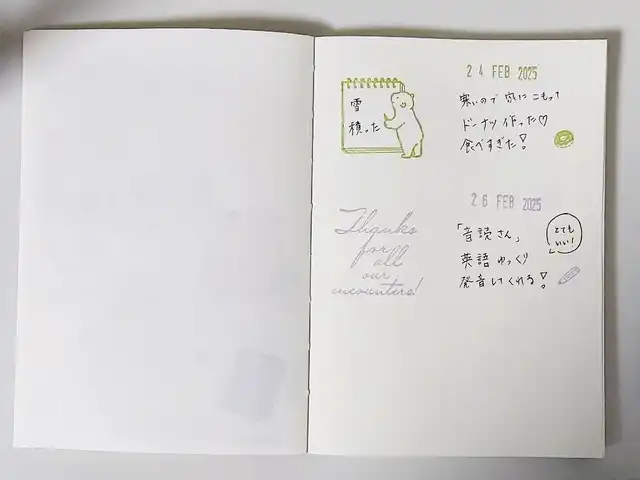 24 FEB 2025
雪
積った
寒いので 家にこもって
ドーナツ作った♡
食べすぎた!
26 FEB 2025
Thanks
for
all
our
encounters!
「音読さん」
英語 ゆっくり
発音してくれる!
とても
いい!